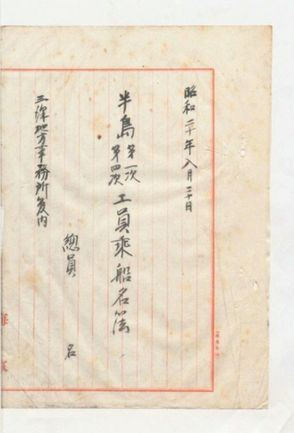 昭和二十年八月二十日
半島第一次第四次工員乘船名簿
三澤地方事務所管内
總員 名